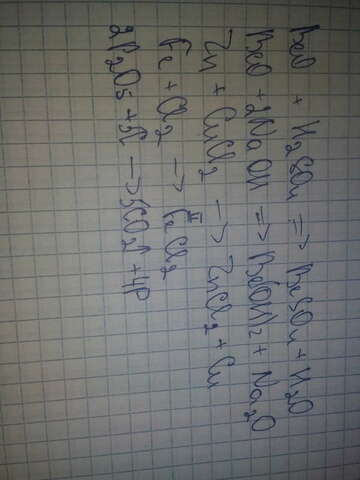 BeO + H₂SO₄ => BeSO₄ + H₂O
BeO + 2NaOH => Be(OH)₂ + Na₂O
Zn + CuCl₂ → ZnCl₂ + Cu
Fe + Cl₂ → FeCl₂
II
2P₂O₅ + 5C → 5CO₂↑ + 4P